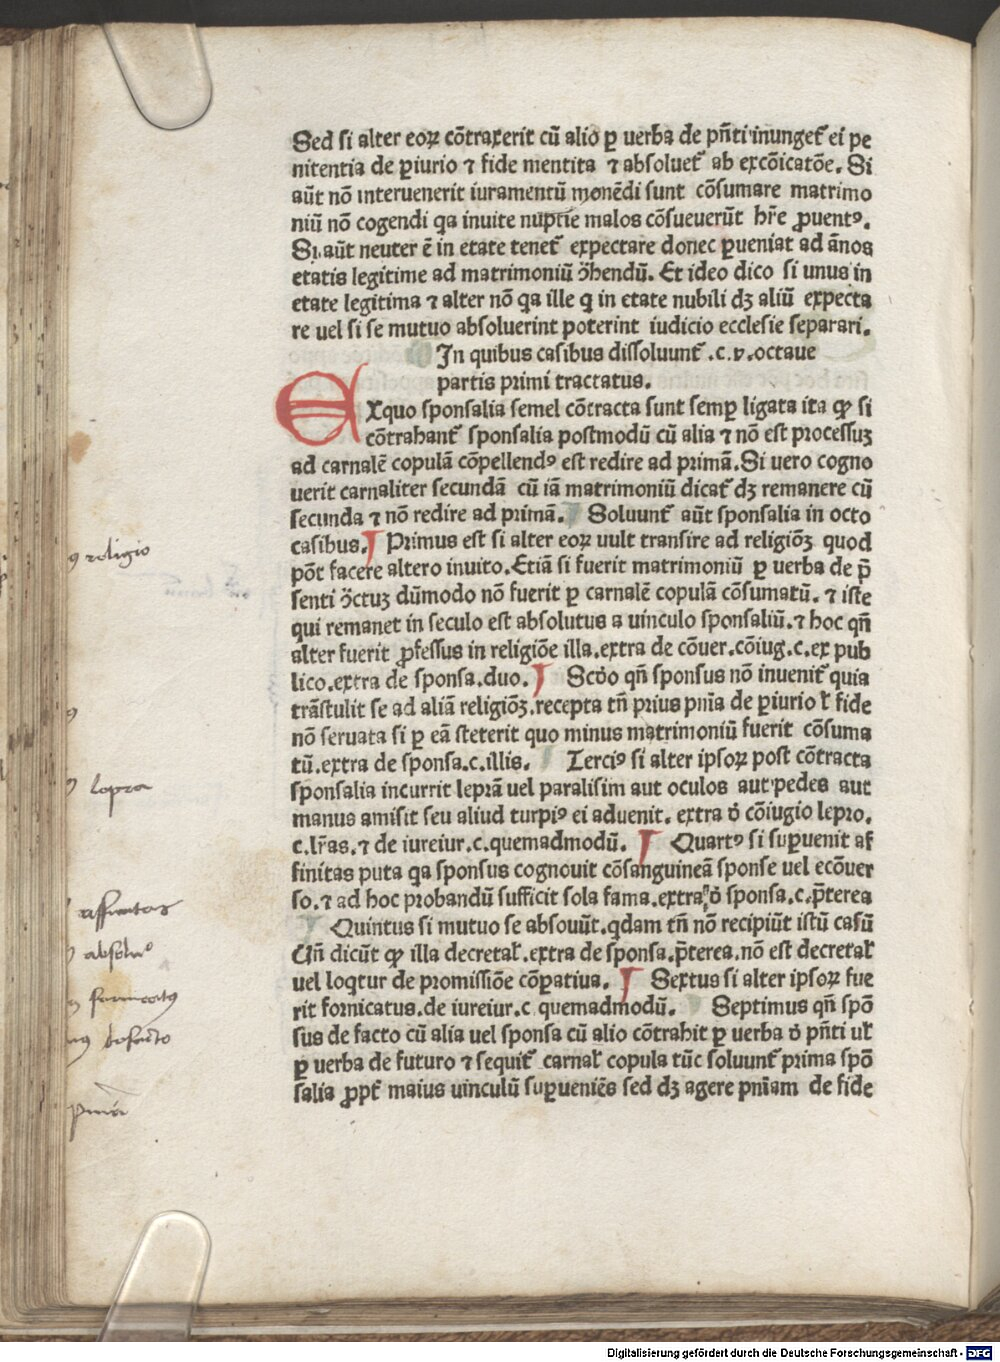 Sed si alter eoꝝ cõtraxerit cũ alio ꝑ uerba de pñti inunget᷑ ei pe
nitentia de ꝑiurio ⁊ fide mentita ⁊ absoluet᷑ ab excõicatõe. Si
aũt nõ interuenerit iuramentũ monẽdi sunt cõsumare matrimo
niũ nõ cogendi qa inuite nuptie malos cõsueuerũt hr̃e ꝓuentꝰ.
Si aũt neuter ẽ in etate tenet᷑ expectare donec ꝑueniat ad ãnos
etatis legitime ad matrimoniũ ↄ̃hendũ. Et ideo dico si unus in
etate legitima ⁊ alter nõ qa ille q̃ in etate nubili dꝫ aliũ expecta
re uel si se mutuo absoluerint poterint iudicio ecclesie separari.
In quibus casibus dissoluunt᷑ .c.v.octaue
partis primi tractatus.
EXquo sponsalia semel cõtracta sunt semꝑ ligata ita ꝙ si
cõtrahant᷑ sponsalia postmodũ cũ alia ⁊ nõ est processuꝫ
ad carnalẽ copulã cõpellendꝰ est redire ad primã. Si uero cogno
uerit carnaliter secundã cũ iã matrimoniũ dicat᷑ dꝫ remanere cũ
secunda ⁊ nõ redire ad primã. Soluunt᷑ aũt sponsalia in octo
casibus. Primus est si alter eoꝝ uult transire ad religiõꝫ quod
põt facere altero inuito. Etiã si fuerit matrimoniũ ꝑ uerba de p̃
senti ↄ̃ctuꝫ dũmodo nõ fuerit ꝑ carnalẽ copulã cõsumatũ. ⁊ iste
qui remanet in seculo est absolutus a uinculo sponsaliũ. ⁊ hoc qñ
alter fuerit ꝓfessus in religiõe illa. extra de cõuer. cõiug. c. ex pub
lico. extra de sponsa. duo. Scd̃o qñ sponsus nõ inuenit᷑ quia
trãstulit se ad aliã religiõꝫ. recepta tñ prius pñia de ꝑiurio ł fide
nõ seruata si ꝑ eã steterit quo minus matrimoniũ fuerit cõsuma
tũ. extra de sponsa. c. illis. Terciꝰ si alter ipsoꝝ post cõtracta
sponsalia incurrit leprã uel paralisim aut oculos aut pedes aut
manus amisit seu aliud turpiꝰ ei aduenit. extra d̃ cõiugio lepro.
c. lr̃as. ⁊ de iureiur. c. quemadmodũ. Quartꝰ si suꝑuenit af
finitas puta qa sponsus cognouit cõsanguineã sponse uel ecõuer
so. ⁊ ad hoc probandũ sufficit sola fama. extra d̃ sponsa. c. p̃terea
Quintus si mutuo se absouũt. qdam tñ nõ recipiũt istũ casũ
Uñ dicũt ꝙ illa decretał. extra de sponsa. p̃terea. nõ est decretał
uel loqtur de promissiõe cõpatiua. Sextus si alter ipsoꝝ fue
rit fornicatus. de iureiur. c quemadmodũ. Septimus qñ spõ
sus de facto cũ alia uel sponsa cũ alio cõtrahit ꝑ uerba d̃ pñti uł
ꝑ uerba de futuro ⁊ sequit᷑ carnał copula tũc soluunt᷑ prima spõ
salia ꝓpt᷑ maius uinculũ suꝑueniẽs sed dꝫ agere pniam de fide
religio
lepra
affinitas
absoluꝰ
pnia
Digitalisierung gefördert durch die Deutsche Forschungsgemeinschaft - DFG